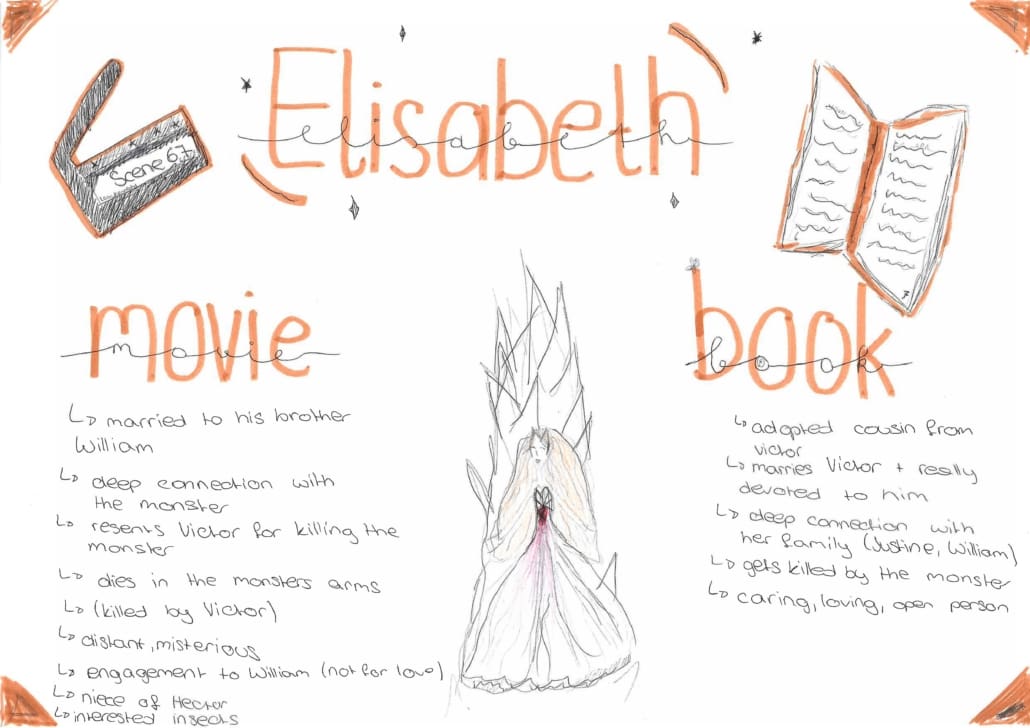 Elisabeth
elisabeth
Scene 67
movie
movie
↳ married to his brother
William
↳ deep connection with
the monster
↳ resents Victor for killing the
monster
↳ dies in the monsters arms
↳ (killed by Victor)
↳ distant, misterious
↳ engagement to William (not for love)
↳ niece of Hector
↳ interested insects
book
book
↳ adopted cousin from
victor
↳ marries Victor + really
devoted to him
↳ deep connection with
her family (Justine, William)
↳ gets killed by the monster
↳ caring, loving, open person